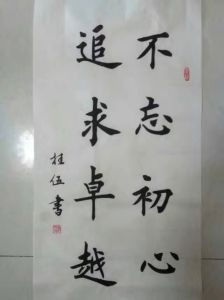 不忘初心
追求卓越
桂伍书